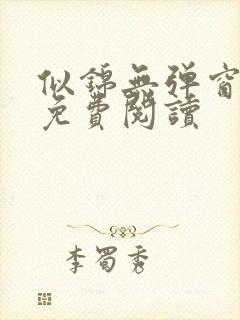 似錦無弹窗
免費閱讀
李蜀秀